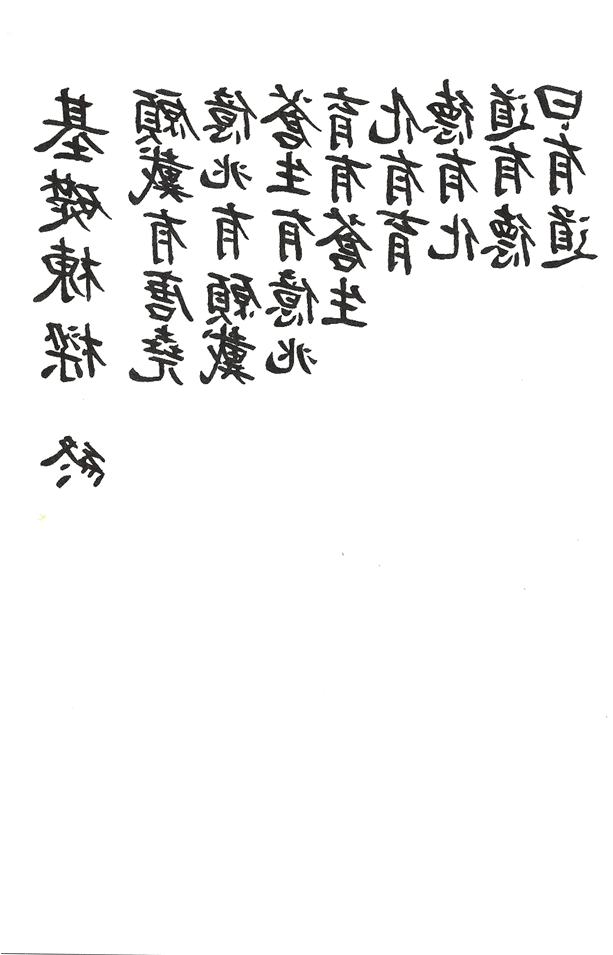 曰有道
道有德
德有化
化有育
育有蒼生
蒼生有億兆
億兆有願戴
願戴有唐堯
基礎棟樑 終